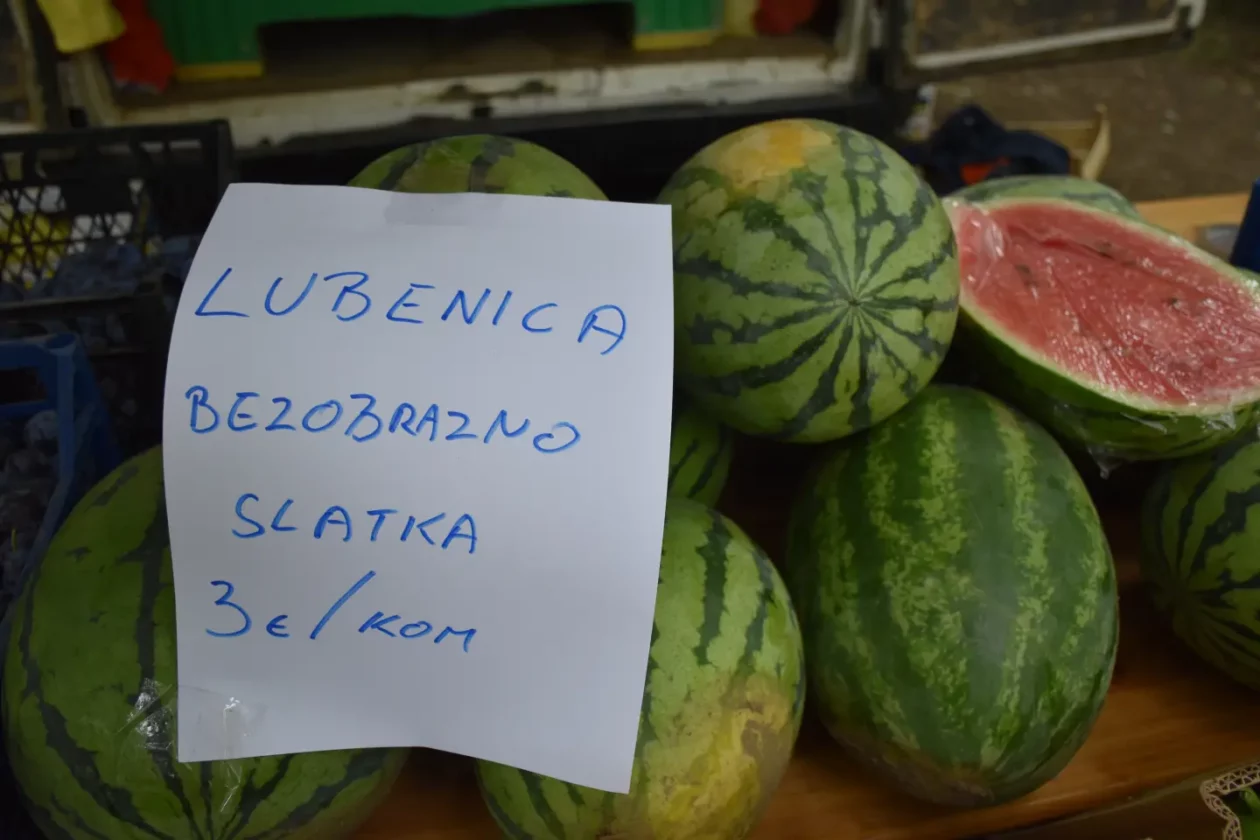 LUBENICA
BEZOBRAZNO
SLATKA
3€/KOM